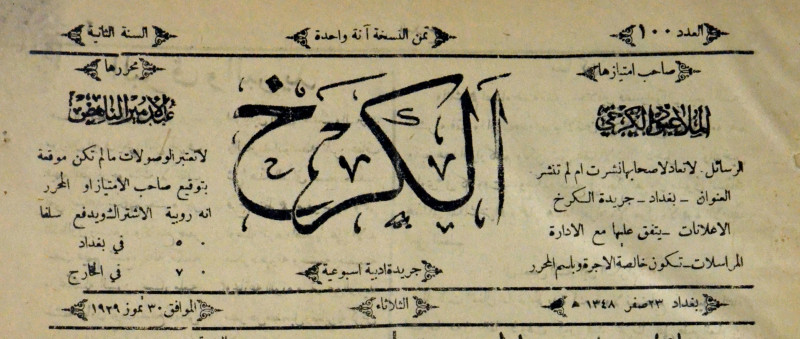 العدد ١٠٠
ثمن النسخة آنة واحدة
السنة الثانية
صاحب امتيازها
الملا عبود الكرخي
الرسائل . لاتعاد لاصحابها نشرت ام لم تنشر
العنوان ـ بغداد ـ جريدة الكرخ
الاعلانات ـ يتفق عليها مع الادارة
المراسلات ـ تكون خالصة الاجرة وباسم المحرر
الكرخ
جريدة ادبية اسبوعية
محررها
عبد الامير الناهض
لاتعتبر الوصولات مالم تكن موقعة
بتوقيع صاحب الامتياز او المحرر
انه روبية الاشتراك ويدفع سلفا
٠ ٥ في بغداد
٠ ٧ في الخارج
بغداد ٢٣ صفر ١٣٤٨ ه
الثلاثاء
الموافق ٣٠ تموز ١٩٢٩